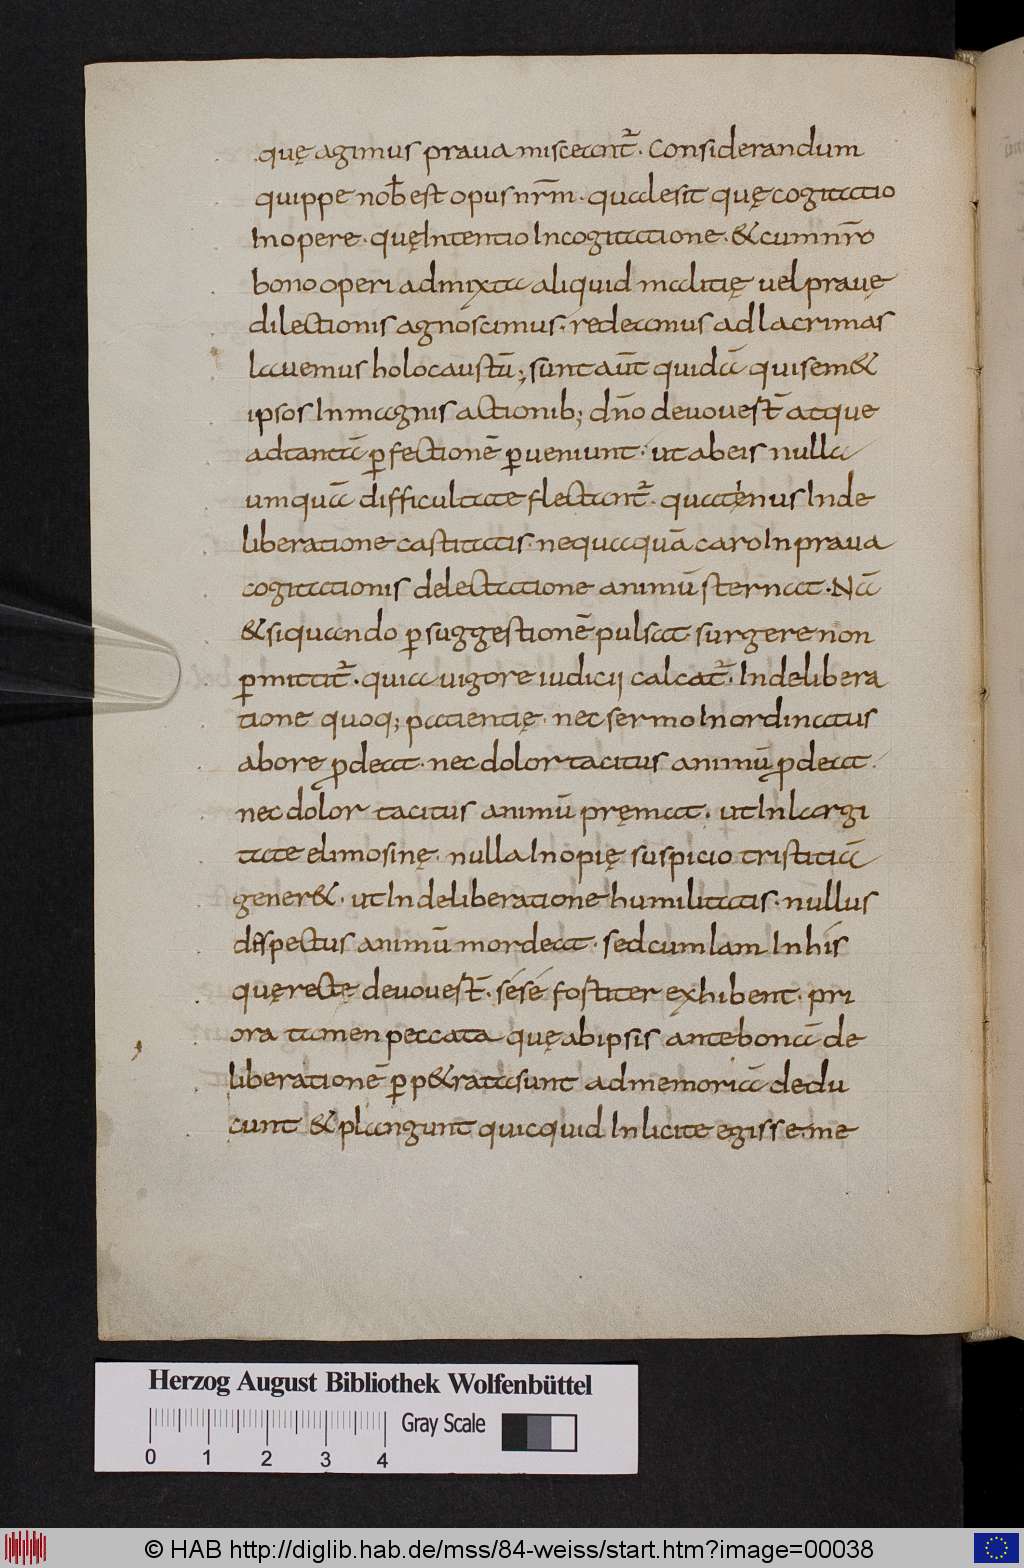 quę agimus praua misceant᷑· Considerandum
quippe nob̄ est opus nr̄m · quale sit quę cogitatio
In opere · quę Intentio In cogitatione · & cum nr̄o
bono operi admixta aliquid malitię uel prauę
dilectionis agnoscimus · redeamus ad lacrimas
lauemus holocaustū; sunt aūt quidā qui sem&
ipsos In magnis actionib; dn̄o deuouest̄ atque
ad tantā ꝑfectionē ꝑueniunt · ut ab eis nulla
umquā difficultate flectant᷑ · quatenus In de
liberatione castitatis · nequaquā caro In praua
cogitationis delectatione animū sternat · Nā
& si quando ꝑ suggestionē pulsat surgere non
ꝑmittit᷑ · quia uigore iudicij calcat᷑ · In delibera
tione quoq; patientię · nec sermo Inordinatus
ab ore ꝑdeat · nec dolor tacitus animū ꝑdeat ·
nec dolor tacitus animū pręmat · ut In largi
tate elimosinę · nulla Inopię suspicio tristitiā
gener& · ut In deliberatione humilitatis · nullus
dispectus animū mordeat · sed cum Iam In his
quę rectę deuouest̄ · sésé fostiter exhibent · pri
ora tamen peccata quę ab ipsis ante bonā de
liberationē ꝑp&rata sunt ad memoriā dedu
cunt & plangunt quicquid Inlicite egisse me
Herzog August Bibliothek Wolfenbüttel
Gray Scale
0 1 2 3 4
© HAB http://diglib.hab.de/mss/84-weiss/start.htm?image=00038